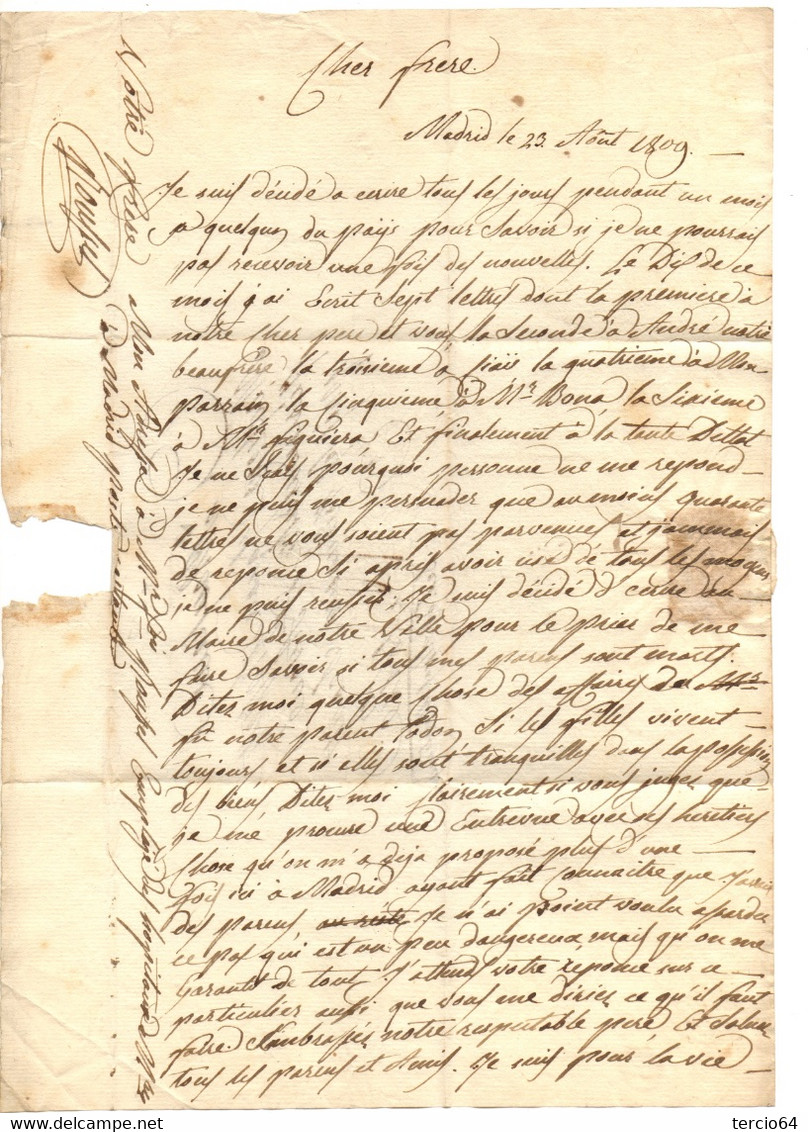 Cher frere.
Madrid le 23 Août 1809. —
Je suis décidé a ecrire tous les jours pendant un mois
a quelqun du paÿs pour savoir si je ne pourrais
pas recevoir une fois des nouvelles. Le Dix de ce
mois j'ai Ecrit Sept lettres dont la premiere à
notre Cher pere et vous la Seconde à André notre
beaufrere la troisieme a la quatrieme à Mon
parrain la Cinquieme à Mr. Bona la Sixieme
à Mr. figuiera Et finalement à la tante
Je ne Sais pourquoi personne ne me repond —
je ne puis me persuader que au moins quarante
lettres ne vous soient pas parvenues et jammais
de reponse Si apris avoir usé de tous les moyens
je ne puis reussir; Je suis décidé d'ecrire au
Maire de notre Ville pour le prier de me
faire Savoir si tous mes parens sont morts.
Dites moi quelque Chose des affaires de
fu notre parent Si les filles vivent —
toujours et si elles sont tranquilles dans la possession
des biens Dites moi Clairement si vous jugez que —
je me procure une Entrevue avec ses heritiers
Chose qu'on m'a deja proposé plus d'une —
fois ici à Madrid ayant fait connaitre que J'avais
des parens au reste Je n'ai point voulu
ce pas qui est un peu dangereux, mais qu'on me
Garantit de tout. J'attends votre reponse sur ce —
particulier aussi que vous me diriez ce qu'il faut
faire. Embrassez notre respectable pere Et Saluez
tous les parens et Amis. Je suis pour la vie —
Votre frere
Mon Adresse à Mr. Employé des hopitaux
a Madrid poste restante
tercio64